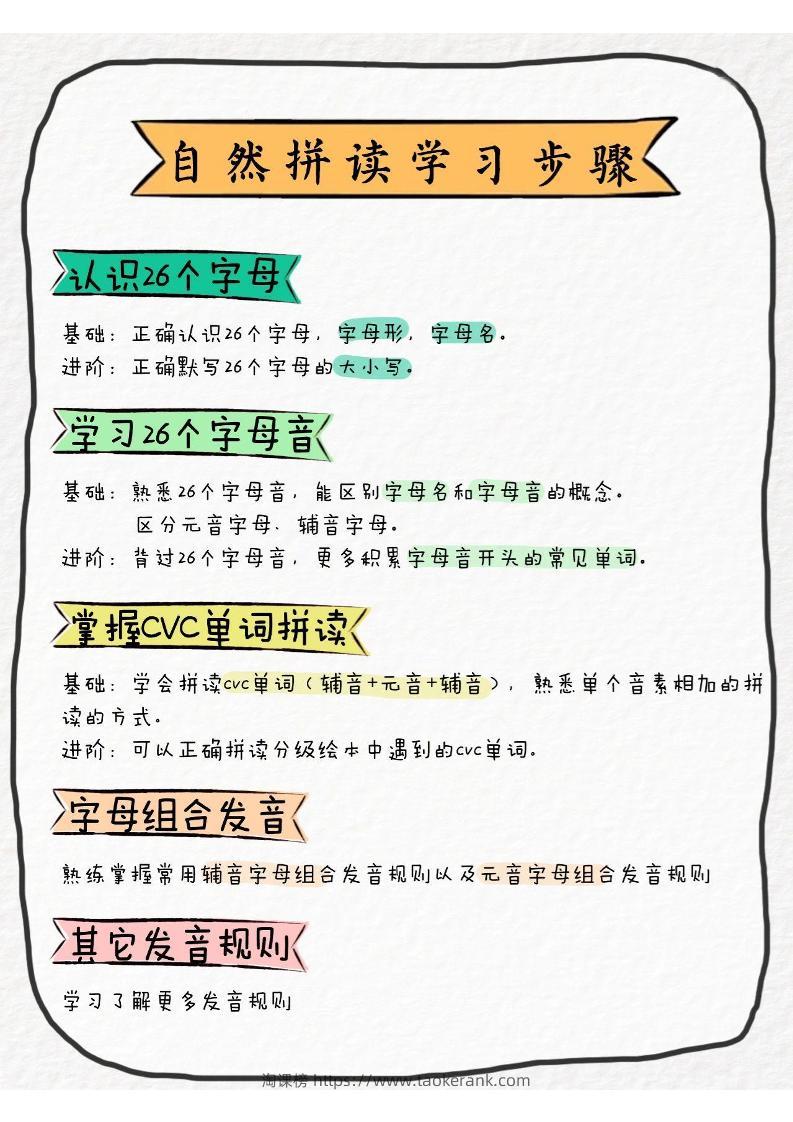 自然拼读学习步骤
认识26个字母
基础：正确认识26个字母，字母形，字母名。
进阶：正确默写26个字母的大小写。
学习26个字母音
基础：熟悉26个字母音，能区别字母名和字母音的概念。
区分元音字母、辅音字母。
进阶：背过26个字母音，更多积累字母音开头的常见单词。
掌握CVC单词拼读
基础：学会拼读cvc单词（辅音+元音+辅音），熟悉单个音素相加的拼
读的方式。
进阶：可以正确拼读分级绘本中遇到的cvc单词。
字母组合发音
熟练掌握常用辅音字母组合发音规则以及元音字母组合发音规则
其它发音规则
学习了解更多发音规则
淘课榜 https://www.taokerank.com